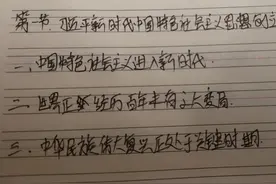 第一节 习近平新时代中国特色社会主义思想
一、中国特色社会主义进入新时代.
二、世界正经历百年未有之大变局.
三、中华民族伟大复兴正处于关键时期.